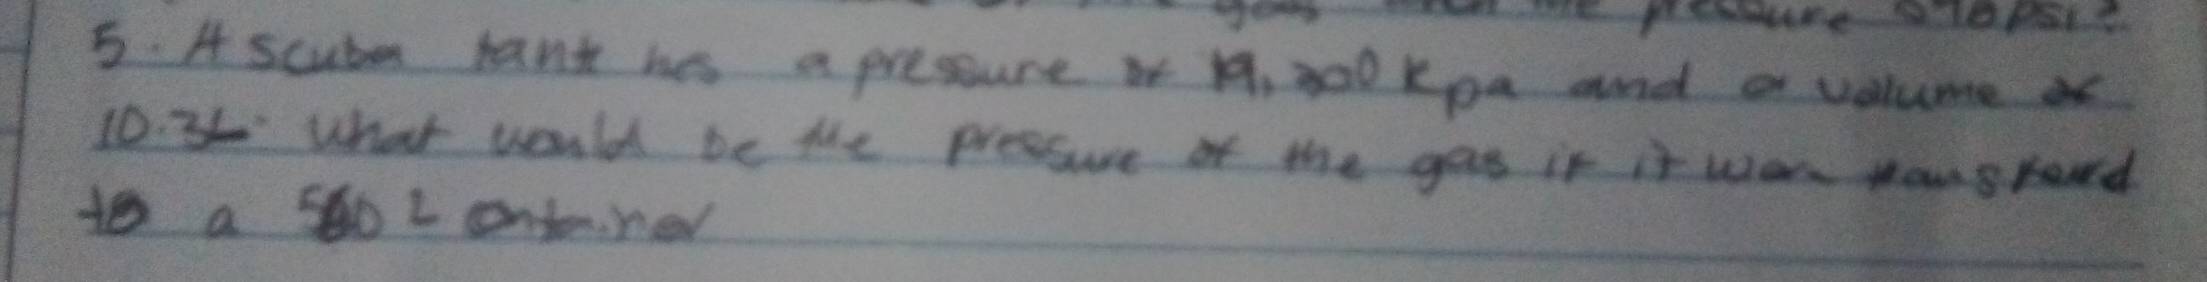 gas when the pressure 548 psi?
5. A scuba tank has a pressure of 19,300 Kpa and a volume of
10.3L. What would be the pressure of the gas if it were transferd
to a 50 L container